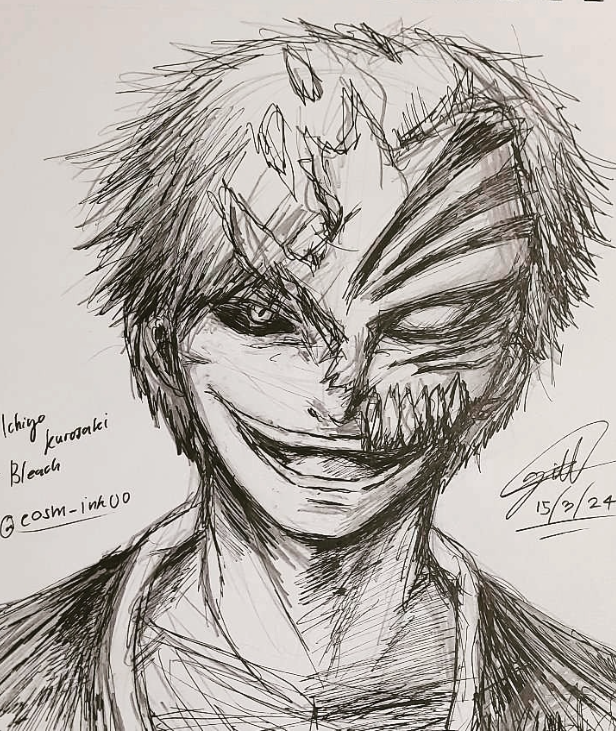 Ichigo
Kurosaki
Bleach
@cosm-ink00
15/3/24